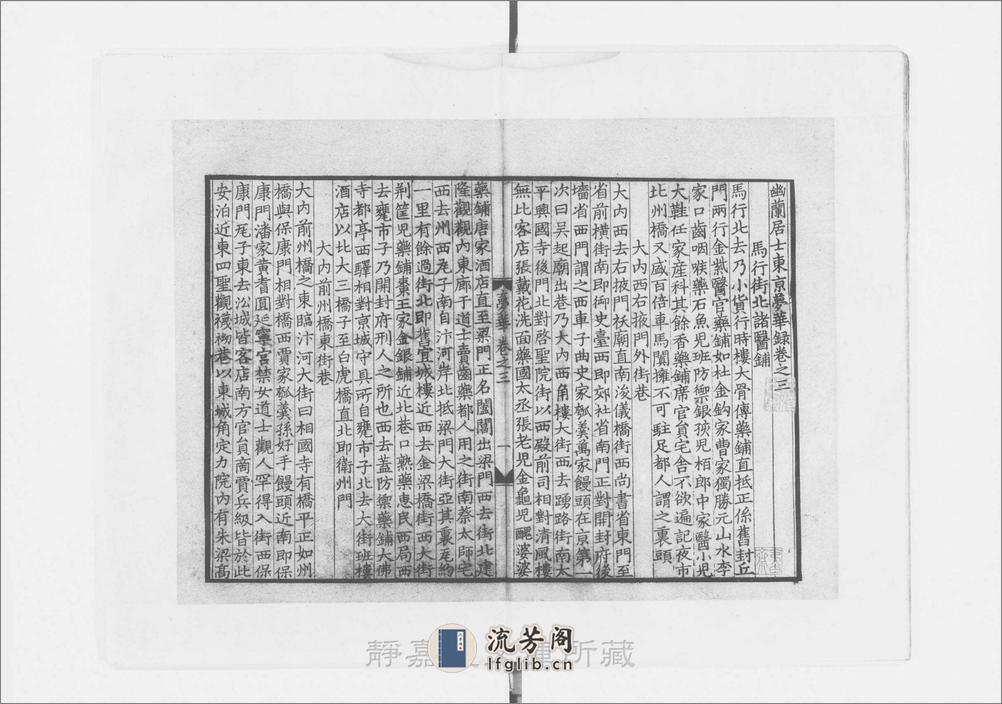 幽蘭居士東京夢華錄卷之三
馬行街北諸醫鋪
馬行北去乃小貨行時樓大骨傳藥鋪直抵正係舊封丘
門兩行金紫醫官藥鋪如杜金鈎家曹家獨勝元山水李
家口齒咽喉藥石魚兒班防禦銀孩兒栢郎中家醫小兒
大鞋任家産科其餘香藥鋪席官員宅舎不欲遍記夜市
北州橋又盛百倍車馬闐擁不可駐足都人謂之裏頭
大内西右掖門外街巷
大内西去右掖門祆廟直南浚儀橋街西尚書省東門至
省前横街南即御史臺西即郊社省南門正對開封府後
墻省西門謂之西車子曲史家瓠羹萬家饅頭在京第一
次曰吴起廟出巷乃大内西角樓大街西去踴路街南太
平興國寺後門北對啓聖院街以西殿前司相對清風樓
無比客店張戴花洗面藥國太丞張老兒金龜兒醜婆婆
夢華 卷之三
一
藥鋪唐家酒店直至梁門正名閶闔出梁門西去街北建
隆觀觀内東廊于道士賣齒藥都人用之街南蔡太師宅
西去州西瓦子南自汴河岸北抵梁門大街亞其裏瓦約
一里有餘過街北即舊宜城樓近西去金梁橋街西大街
荆筐兒藥鋪棗王家金銀鋪近北巷口熟藥惠民西局西
去甕市子乃開封府刑人之所也西去蓋防禦藥鋪大佛
寺都亭西驛相對京城守具所自甕市子北去大街班樓
酒店以北大三橋子至白虎橋直北即衛州門
大内前州橋東街巷
大内前州橋之東臨汴河大街曰相國寺有橋平正如州
橋與保康門相對橋西賈家瓠羹孫好手饅頭近南即保
康門潘家黄耆圓延寧宮禁女道士觀人罕得入街西保
康門瓦子東去沿城皆客店南方官員商賈兵級皆於此
安泊近東四聖觀襪䄂巷以東城角定力院内有朱梁高
靜嘉
所藏
流芳阁
lfglib.cn